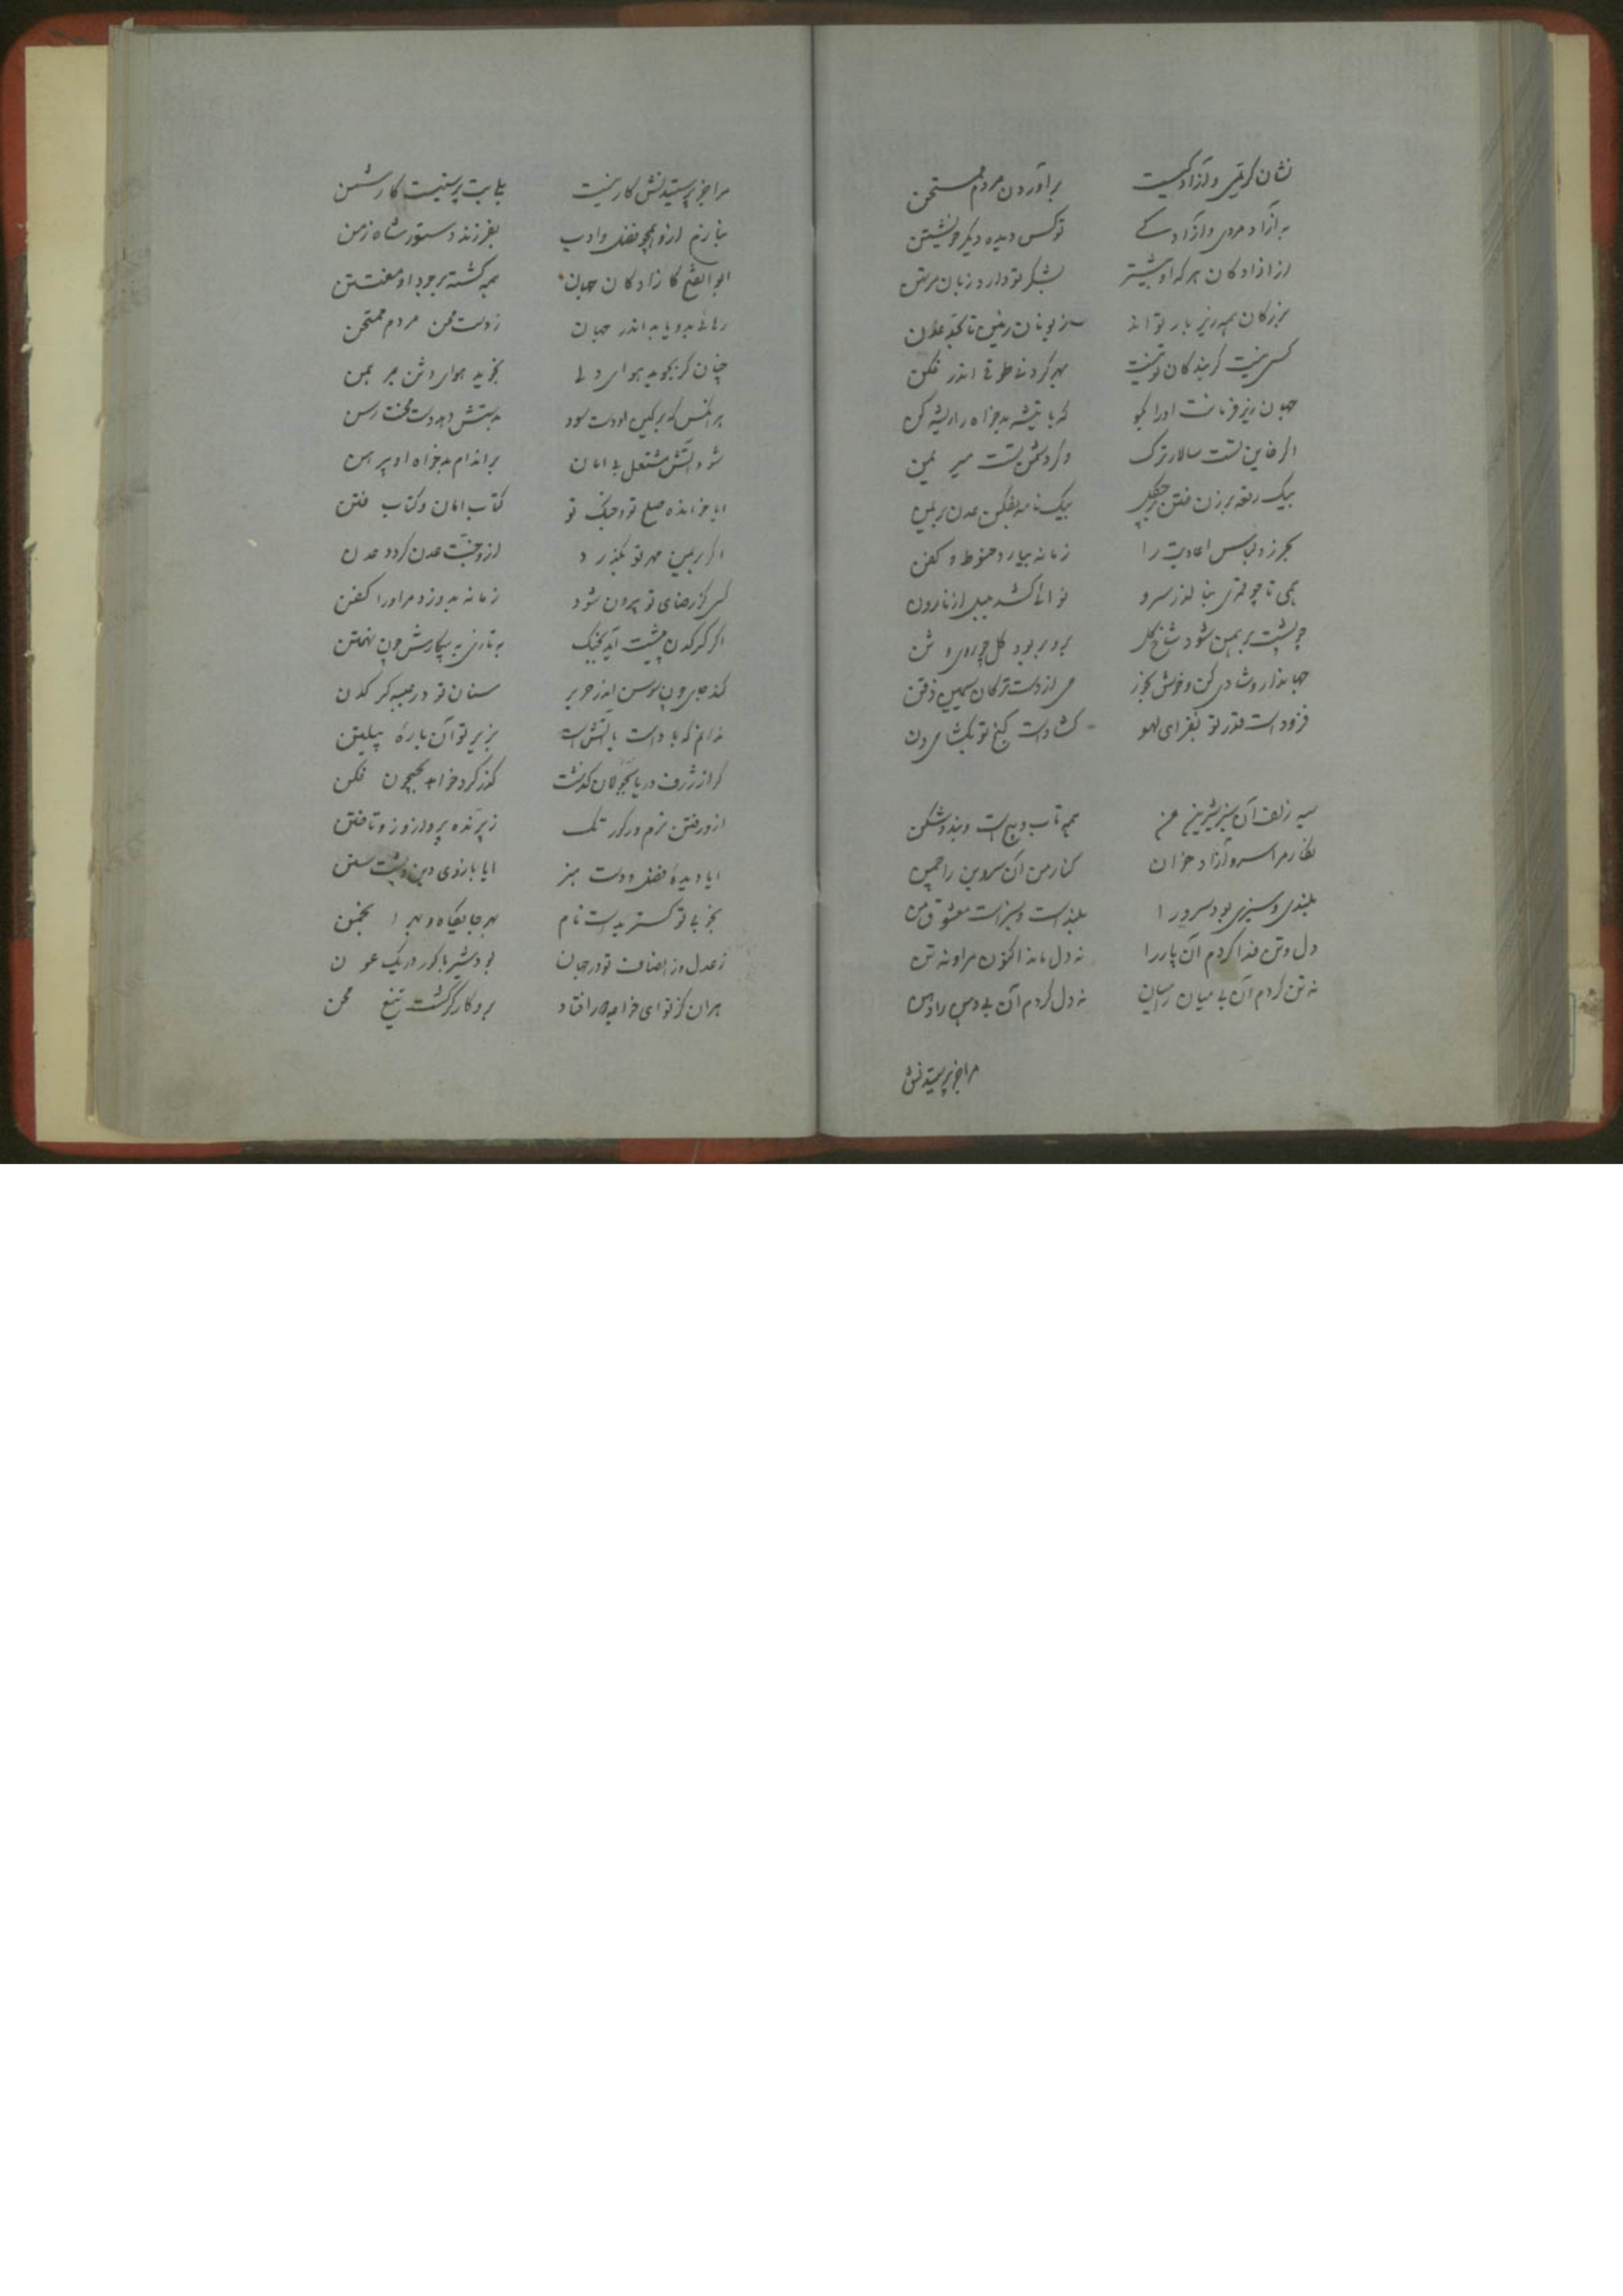 نشان کریمی و آزادگیست برآوردن مردم ممتحن
به آزاد مردی و آزادگی توکس دیده دیگر خویشتن
از ازادکان هر که او پیشتر بشکر تو دارد زبان مرتهن
بزرکان همه زیر بار تو اند
کسی نیست کز بندکان تو نیست بهر کردنی طوقی اندر فکن
جهان زیر فرمانت او را بگو که با تیشه بدخواه را ریشه کن
اگر خاین تست سالار ترک وگر دشمن تست میر یمن
بیک رقعه بر زن ختن بر چگل بیک نامه بفکن عدن بر یمن
بجز زو لباس اعادیت را زمانه نیارد حنوط و کفن
همی تا چو قمری بنالد ز سرو نوائی کشد بلبل از نارون
چو پشت برهمن شود شاخ گل برو بر بود گل چو روی وثن
جهاندار و شادی کن و نوش خور می از دست ترکان سیمین ذقن
فزوداست قدر تو بفزای لهو کشاداست گنج تو بکشای دن
سیه زلف آن سبز شیرین من همه تاب و پیچ است و بند و شکن
کنار من آن سرو بن را چمن
بلندی و سبزی بود سرو را بلند است و سبز است معشوق من
دل و تن فدا کردم آن یار را نه دل ماند اکنون مرا و نه تن
نه تن کردم آن بی میان را میان نه دل کردم آن بی دهن را دهن
مرا جز پرستیدنش
مرا جز پرستیدنش کار نیست بلی بت پرستیست کار شمن
بنازم ازو همچو فضل و ادب بفرزند دستور شاه زمن
ابوالفتح کازادکان جهان همه کشته بر جود او مفتتن
رهائی بدو یابد اندر جهان ز دست محن مردم ممتحن
چنان کز بجوید هوای دلی بجوید هوای وثن برهمن
هر انکس که بر کین او دست سود بدستش دهد دست محنت رسن
شود آتش مشتعل بی امان بر اندام بدخواه او پیرهن
ایا خوانده صلح تو و جنک تو کتاب امان و کتاب فتن
اگر بر یمن مهر تو بگذرد ازو جنت عدن کردد عدن
کسی کز رضای تو بیرون شود زمانه بدوزد مر او را کفن
اگر کرکدن پیشت آید بجنک به تازی به پیکارش چون تهمتن
کند جای چون سوسن اندر حریر سنان تو در عیبه کرکدن
ندانم که باد است یا آتش است بزیر تو آن باره پیلتن
گر از ژرف دریا بجولان کذشت کذر کرد خواهد بجیحون فکن
ازو رفتن نرم و زکور تک ز پرنده پرواز و زو تاختن
ایا دیده فضل و دست هنر ایا بازوی دین و پشت سنن
بخوبی تو کستریدست نام بهر جایگاه و بهر انجمن
ز عدل و ز انصاف تو در جهان بود شیر با گور در یک عطن
هر ان کز تو ای خواجه دور افتاد برو کارگر گشت تیغ محن